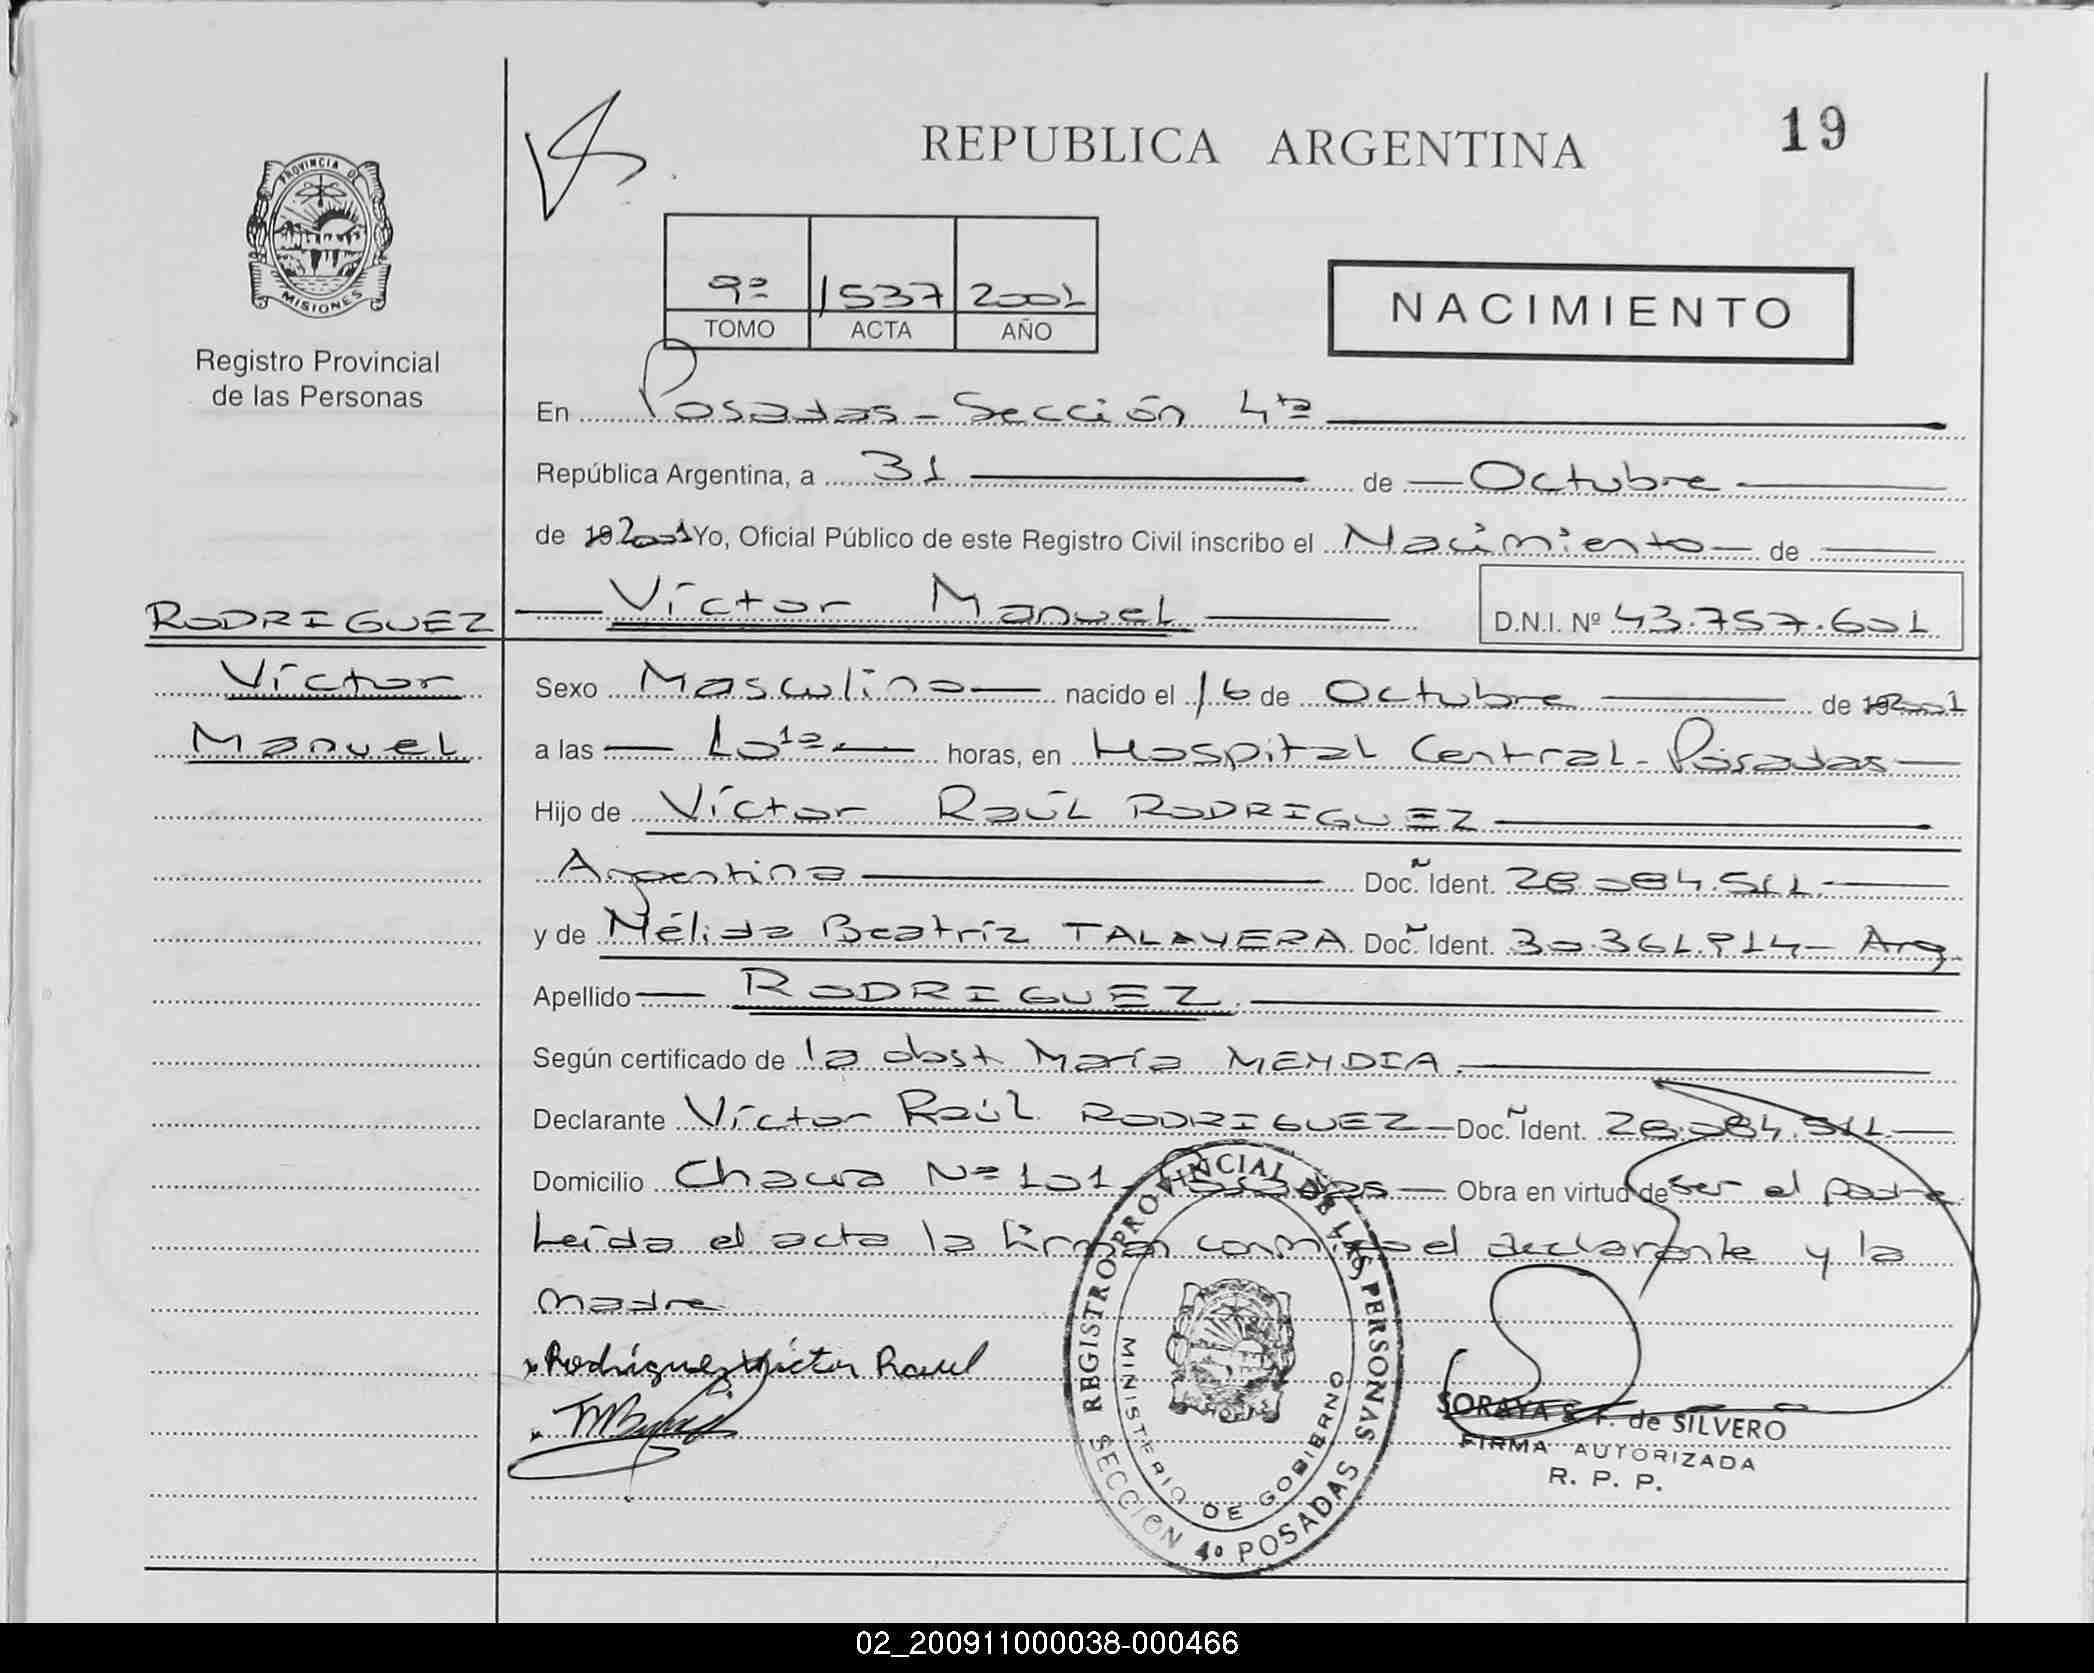 REPUBLICA ARGENTINA
19
PROVINCIA DE
MISIONES
Registro Provincial
de las Personas
9º 1537 2001
TOMO ACTA AÑO
NACIMIENTO
En Posadas - Sección 4ta
República Argentina, a 31 de Octubre
de 19 2001 Yo, Oficial Público de este Registro Civil inscribo el Nacimiento de
RODRIGUEZ
Víctor
Manuel
Víctor Manuel
D.N.I. Nº 43.757.601
Sexo Masculino nacido el 16 de Octubre de 19 2001
a las 10 1º horas, en Hospital Central - Posadas
Hijo de Víctor Raúl RODRIGUEZ
Argentina Docñ Ident. 28.084.511
y de Nélida Beatríz TALAVERA Docñ Ident. 30.361.914 - Arg.
Apellido RODRIGUEZ.
Según certificado de la obst María MENDIA.
Declarante Víctor Raúl RODRIGUEZ Docñ Ident. 28.084.511
Domicilio Chacra Nº 101 - Posadas Obra en virtud de ser el padre
Leída el acta la firman conmigo el declarante y la
madre
Rodríguez Víctor Raul
REGISTRO PROVINCIAL DE LAS PERSONAS
MINISTERIO DE GOBIERNO
SECCION 4º POSADAS
SORAYA S. F. de SILVERO
FIRMA AUTORIZADA
R. P. P.
02_200911000038-000466